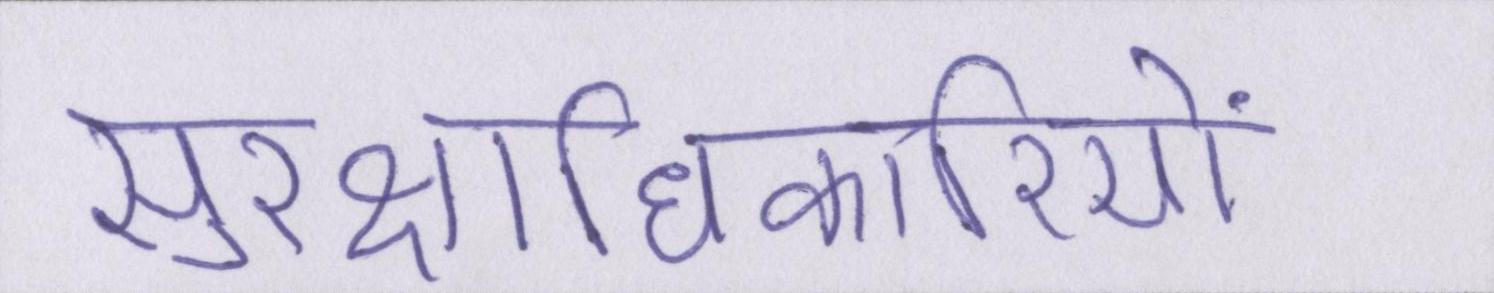 सुरक्षाधिकारियों